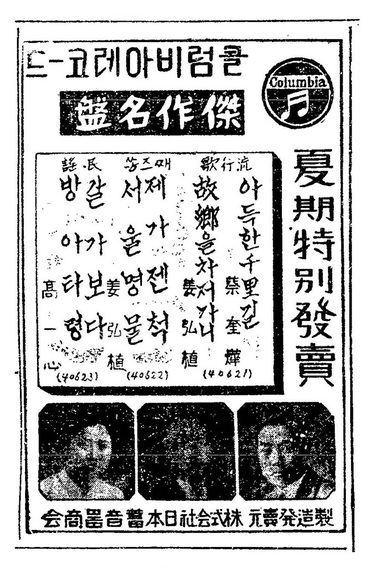 콜럼비아레코-드
Columbia
傑作名盤
夏期特別發賣
流行歌
아득한千里길
蔡奎燁
故鄕을차저가니
姜弘植
(40621)
째즈쏭
제가젠척
서울명물
姜弘植
(40622)
民謠
갈가보다
방아타령
高一心
(40623)
製造発賣元 株式会社日本蓄音器商会